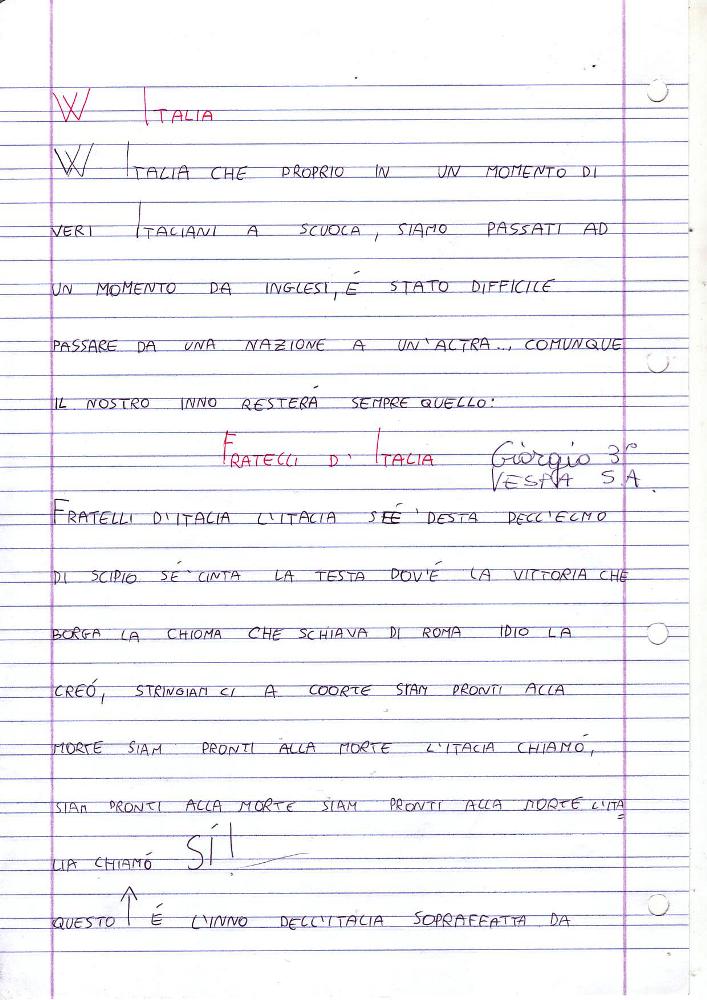 W ITALIA
W ITALIA CHE PROPRIO IN UN MOMENTO DI
VERI ITALIANI A SCUOLA, SIAMO PASSATI AD
UN MOMENTO DA INGLESI, É STATO DIFFICILE
PASSARE DA UNA NAZIONE A UN'ALTRA... COMUNQUE
IL NOSTRO INNO RESTERÁ SEMPRE QUELLO:
FRATELLI D'ITALIA
Giorgio 3°
VESPA S.A.
FRATELLI D'ITALIA L'ITALIA SÉ DESTA DELL'ELMO
DI SCIPIO SÉ CINTA LA TESTA DOV'É LA VITTORIA CHE
BORGA LA CHIOMA CHE SCHIAVA DI ROMA IDIO LA
CREÓ, STRINGIAM CI A COORTE SIAM PRONTI ALLA
MORTE SIAM PRONTI ALLA MORTE L'ITALIA CHIAMÓ,
SIAM PRONTI ALLA MORTE SIAM PRONTI ALLA MORTE L'ITA=
LIA CHIAMÓ SÍ!
QUESTO ↑ É L'INNO DELL'ITALIA SOPRAFFATTA DA